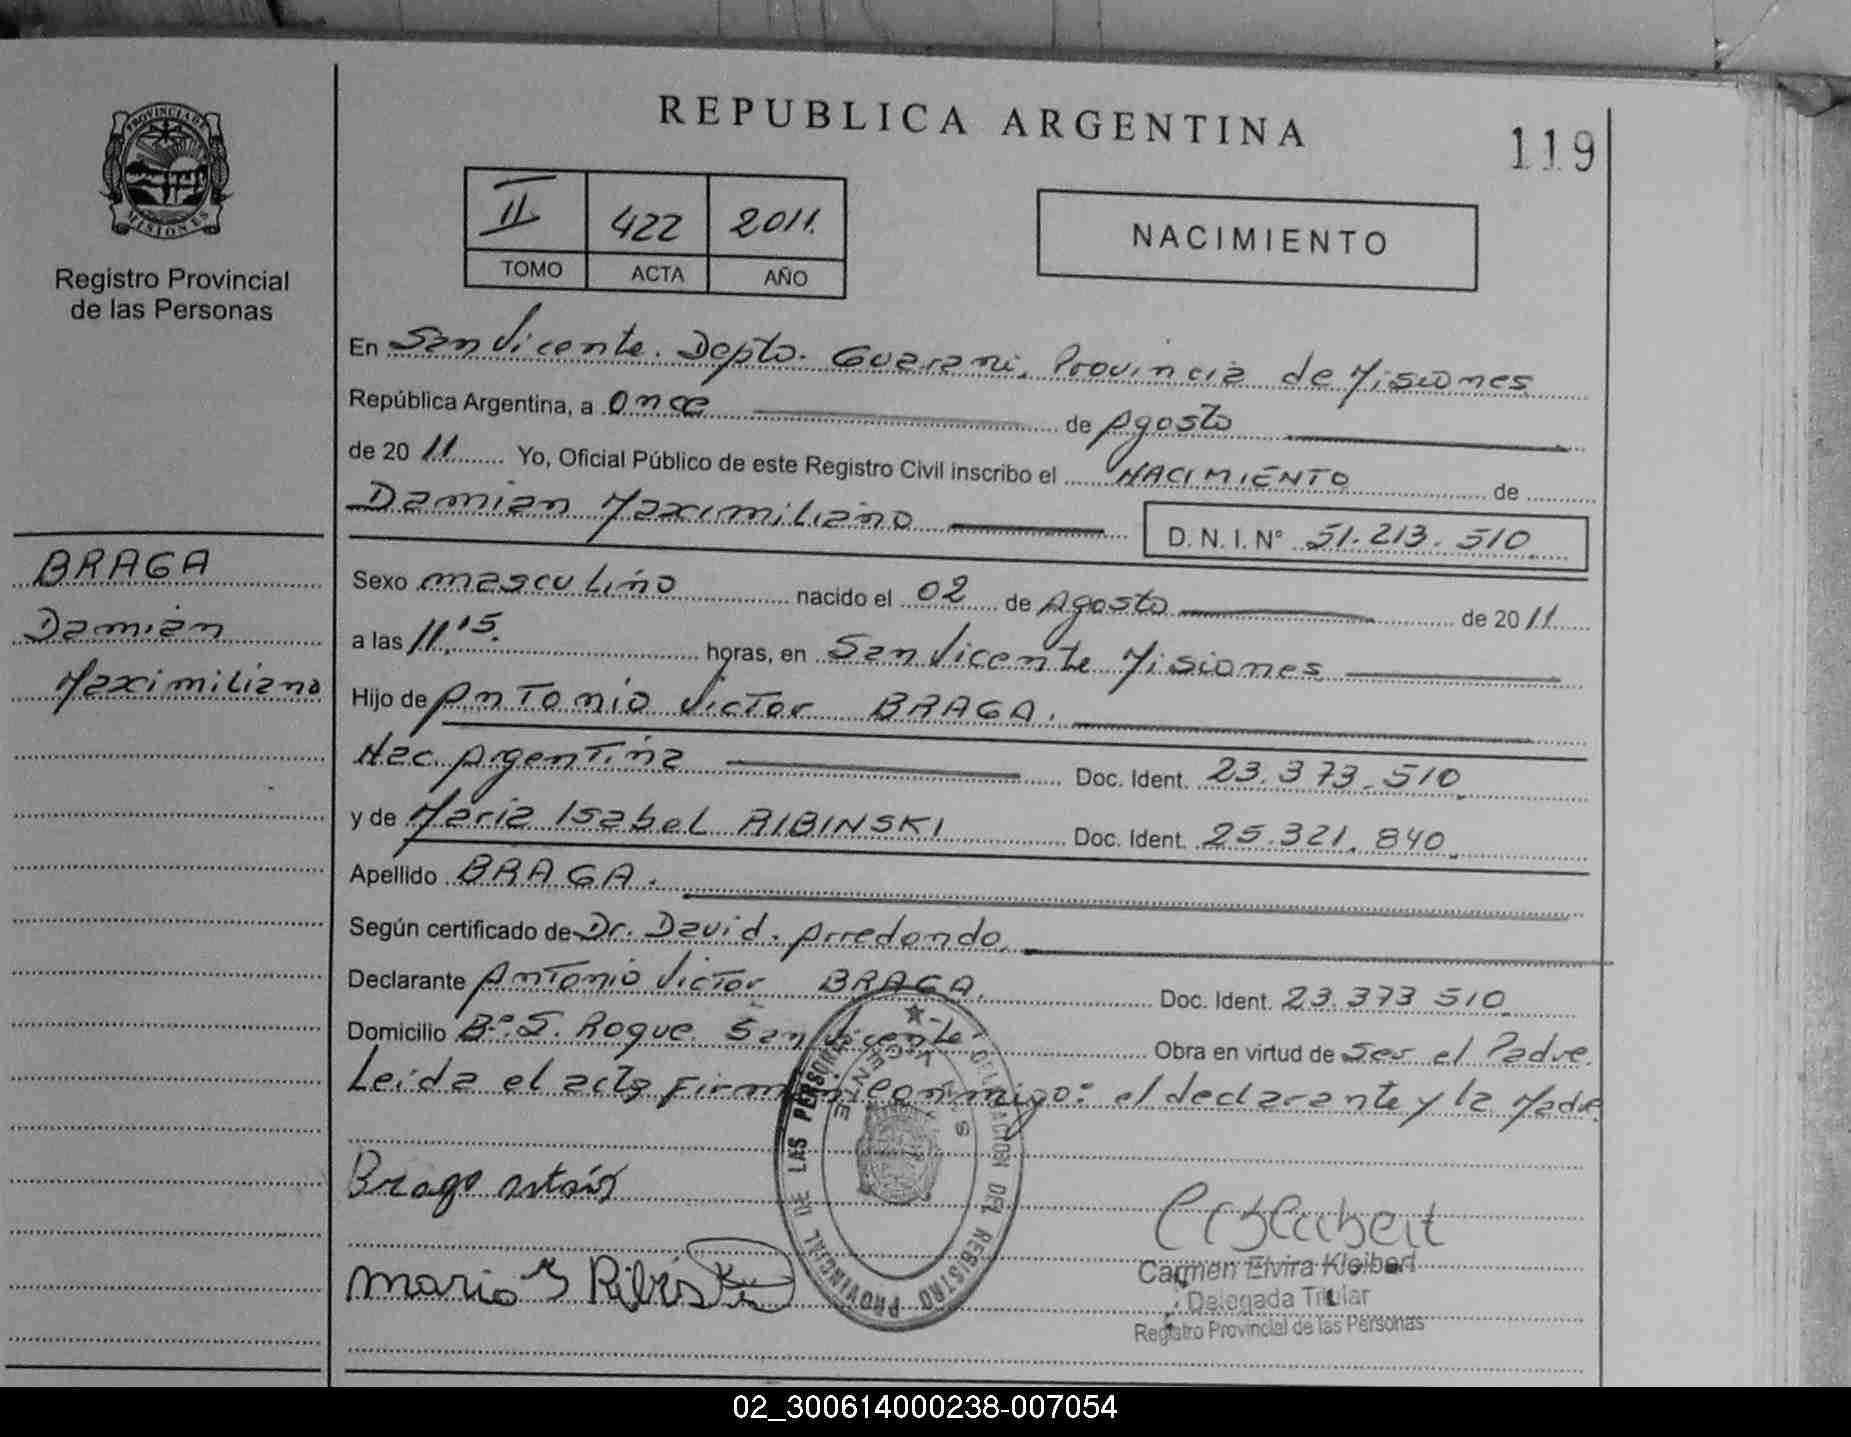 REPUBLICA ARGENTINA
119
PROVINCIA DE
MISIONES
Registro Provincial
de las Personas
II 422 2011.
TOMO ACTA AÑO
NACIMIENTO
En San Vicente. Dpto. Guarani. Provincia de Misiones
República Argentina, a once de Agosto
de 2011 Yo, Oficial Público de este Registro Civil inscribo el NACIMIENTO de
Damian Maximiliano
D. N. I. Nº 51.213.510
BRAGA
Damian
Maximiliano
Sexo masculino nacido el 02 de Agosto de 2011
a las 11,15. horas, en San Vicente Misiones
Hijo de Antonio Victor BRAGA.
Nac. Argentina Doc. Ident. 23.373.510
y de Maria Isabel RIBINSKI Doc. Ident. 25.321.840
Apellido BRAGA.
Según certificado de Dr. David. Arredondo
Declarante Antonio Victor BRAGA. Doc. Ident. 23.373 510
Domicilio Bº. S. Roque. San Vicente Obra en virtud de Ser el Padre.
Leida el acta firman conmigo: el declarante y la Madre
DELEGACION DEL REGISTRO PROVINCIAL DE LAS PERSONAS
SAN VICENTE
Carmen Elvira Kleibert
Delegada Titular
Registro Provincial de las Personas
02_300614000238-007054